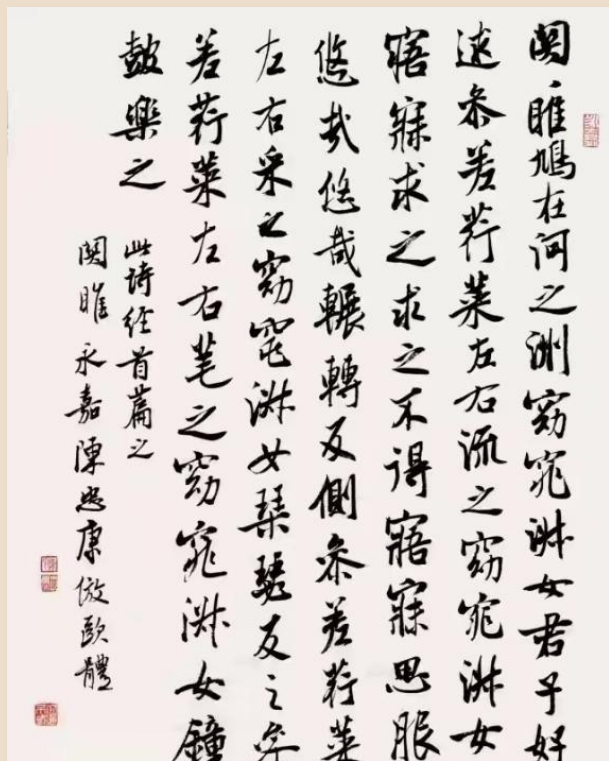 關〻雎鳩在河之洲窈窕淑女君子好
逑參差荇菜左右流之窈窕淑女
寤寐求之求之不得寤寐思服
悠哉悠哉輾轉反側參差荇菜
左右采之窈窕淑女琴瑟友之參
差荇菜左右芼之窈窕淑女鐘
鼓樂之
此詩經首篇之
關雎永嘉陳忠康倣歐體